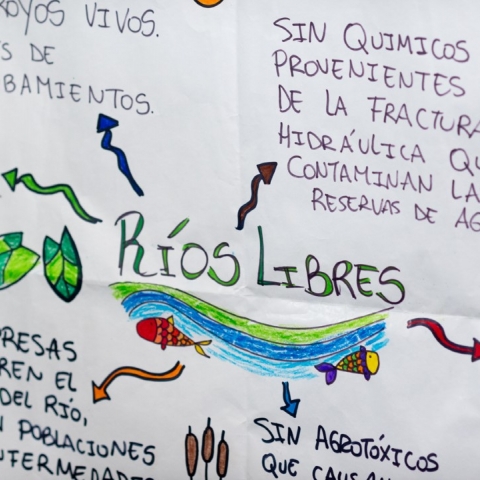 ROYOS VIVOS.
DE
BAMIENTOS.
SIN QUIMICOS
PROVENIENTES
DE LA FRACTURA
HIDRÁULICA QU
CONTAMINAN LA
RESERVAS DE AG
RÍOS LIBRES
PRESAS
REN EL
DEL RÍO,
POBLACIONES
NFERMEDADES
SIN AGROTÓXICOS
QUE CAUSAN